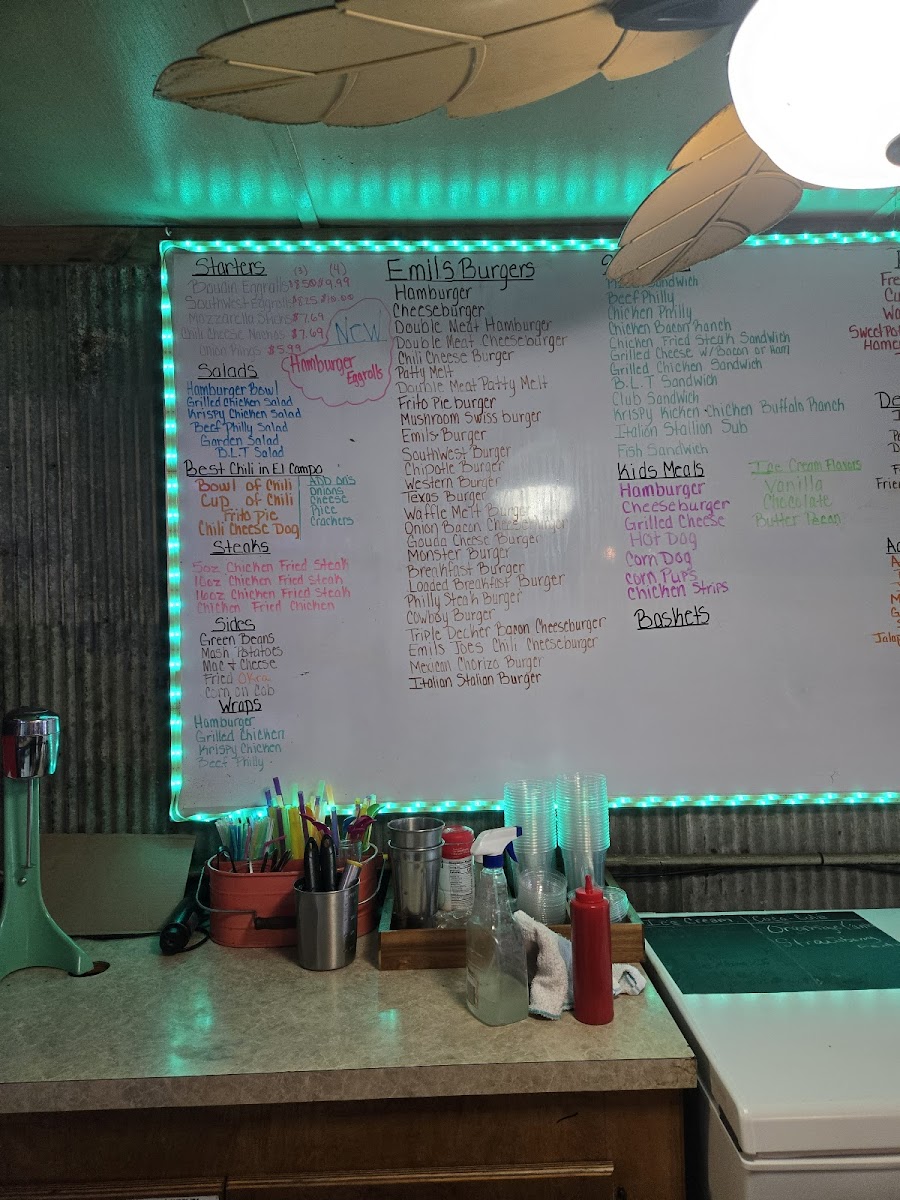 Starters
(3) (4)
Boudin Eggrolls $8.50 $9.99
Southwest Eggrolls $10.00
Mozzarella Sticks $7.69
Chili Cheese Nachos $7.69
Onion Rings $5.99
New
Hamburger
Eggrolls
Salads
Hamburger Bowl
Grilled Chicken Salad
Krispy Chicken Salad
Beef Philly Salad
Garden Salad
B.L.T Salad
Best Chili in El Campo
Bowl of Chili
Cup of Chili
Frito Pie
Chili Cheese Dog
Add ons
Onions
Cheese
Rice
Crackers
Steaks
5oz Chicken Fried Steak
10oz Chicken Fried Steak
16oz Chicken Fried Steak
Chicken Fried Chicken
Sides
Green Beans
Mash Potatoes
Mac + Cheese
Fried Okra
Corn on Cob
Wraps
Hamburger
Grilled Chicken
Krispy Chicken
Beef Philly
Emils Burgers
Hamburger
Cheeseburger
Double Meat Hamburger
Double Meat Cheeseburger
Chili Cheese Burger
Patty Melt
Double Meat Patty Melt
Frito Pie burger
Mushroom Swiss burger
Emils Burger
Southwest Burger
Chipotle Burger
Western Burger
Texas Burger
Waffle Melt Burger
Onion Bacon Cheeseburger
Gouda Cheese Burger
Monster Burger
Breakfast Burger
Loaded Breakfast Burger
Philly Steak Burger
Cowboy Burger
Triple Decker Bacon Cheeseburger
Emils Joes Chili Cheeseburger
Mexican Chorizo Burger
Italian Stalian Burger
Sandwich
Beef Philly
Chicken Philly
Chicken Bacon Ranch
Chicken Fried Steak Sandwich
Grilled Cheese w/Bacon or Ham
Grilled Chicken Sandwich
B.L.T Sandwich
Club Sandwich
Krispy Kicken Chicken Buffalo Ranch
Italian Stallion Sub
Fish Sandwich
Kids Meals
Hamburger
Cheeseburger
Grilled Cheese
Hot Dog
Corn Dog
Corn Pups
Chicken Strips
Baskets
Ice Cream Flavors
Vanilla
Chocolate
Butter Pecan
Ice Cream
Strawberry